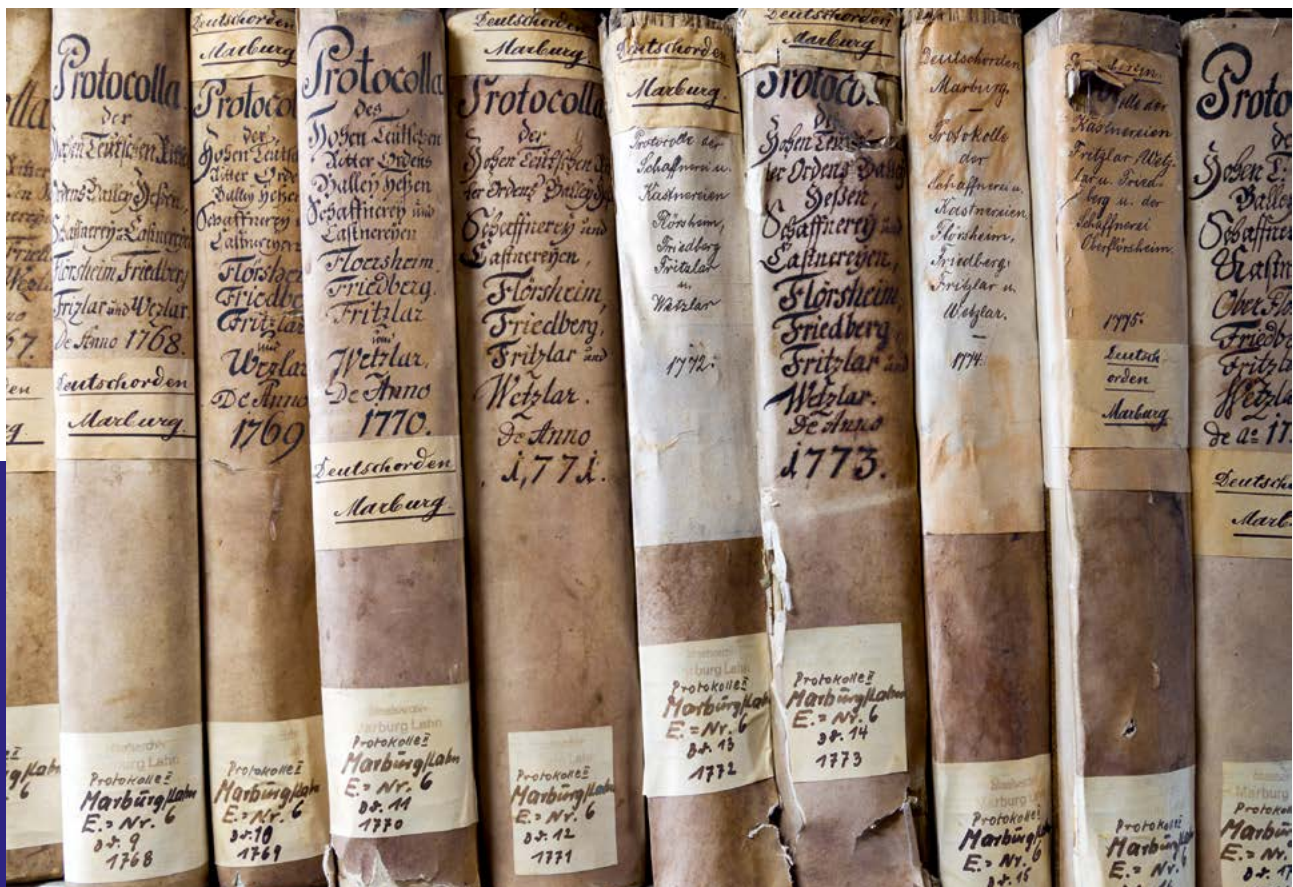 lla
67.
en
g
6
Protocolla
der
Hohen Teutschen Ritter
Ordens Balley Hessen,
Schaffnerey u. Castnereyen
Flörsheim Friedberg
Frizlar und Wezlar
De Anno 1768.
Deutschorden
Marburg.
Protokolle I
Marburg/Lahn
E. = Nr. 6
Bd. 9
1768
Deutschorden
Marburg.
Protocol
der
Hohen Teutsc
Ritter Orde
Balley Hessen
Schaffnerey
Castnereyen
Flörshe
Friedbe
Fritzlar
und
Wezlar
De Anno
1769
Protokolle I
Marburg/Lahn
E. = Nr. 6
Bd. 10
1769
Protocolla
des
Hohen Teutschen
Ritter Ordens
Balley Heßen
Schaffnerey und
Castnereyen
Floersheim.
Friedberg.
Fritzlar
und
Wetzlar.
De Anno
1770.
Deutschorden
Marburg.
Marburg Lahn
Protokolle I
Marburg/Lahn
E. = Nr. 6
Bd. 11
1770
Deutschorden
Marburg.
Protocolla
der
Hohen Teutschen Rit
ter Ordens Balley
Schaffnerey und
Castnereyen,
Flörsheim,
Friedberg,
Fritzlar und
Wetzlar.
De Anno
1771.
Protokolle I
Marburg/Lahn
E. = Nr. 6
Bd. 12
1771
Deutschorden
Marburg.
Protocolle der
Schaffnerei u.
Kastnereien
Flörsheim,
Friedberg
Fritzlar
u.
Wetzlar
1772.
Protokolle I
Marburg/Lahn
E. = Nr. 6
Bd. 13
1772
Deutschorden
Marburg.
Protoco
der
Hohen Teutsc
ter Ordens Balley
Heßen,
Schaffnerey und
Castnereyen,
Flörsheim,
Friedberg,
Fritzlar und
Wetzlar.
De Anno
1773.
Protokolle I
Marburg/Lahn
E. = Nr. 6
Bd. 14
1773
Deutschorden
Marburg.
Protokolle
der
Schaffnerei u.
Kastnereien
Flörsheim,
Friedberg
Fritzlar u.
Wetzlar.
1774.
Protokolle
Marburg
E. = Nr. 6
Bd. 15
olle der
Kastnereien
Fritzlar Wetz-
lar u. Fried-
berg u. der
Schäffnerei
Oberflörsheim.
1775.
Deutsch-
orden
Marburg
Protokolle I
Marburg
E. = Nr. 6
Proto
de
Hohen T
Balley
Schaffner
Kastn
Ober Flö
Friedb
Fritzla
Wetzla
de ao 17
Deutscho
Marb
Protokoll
Marbu
E. = Nr.